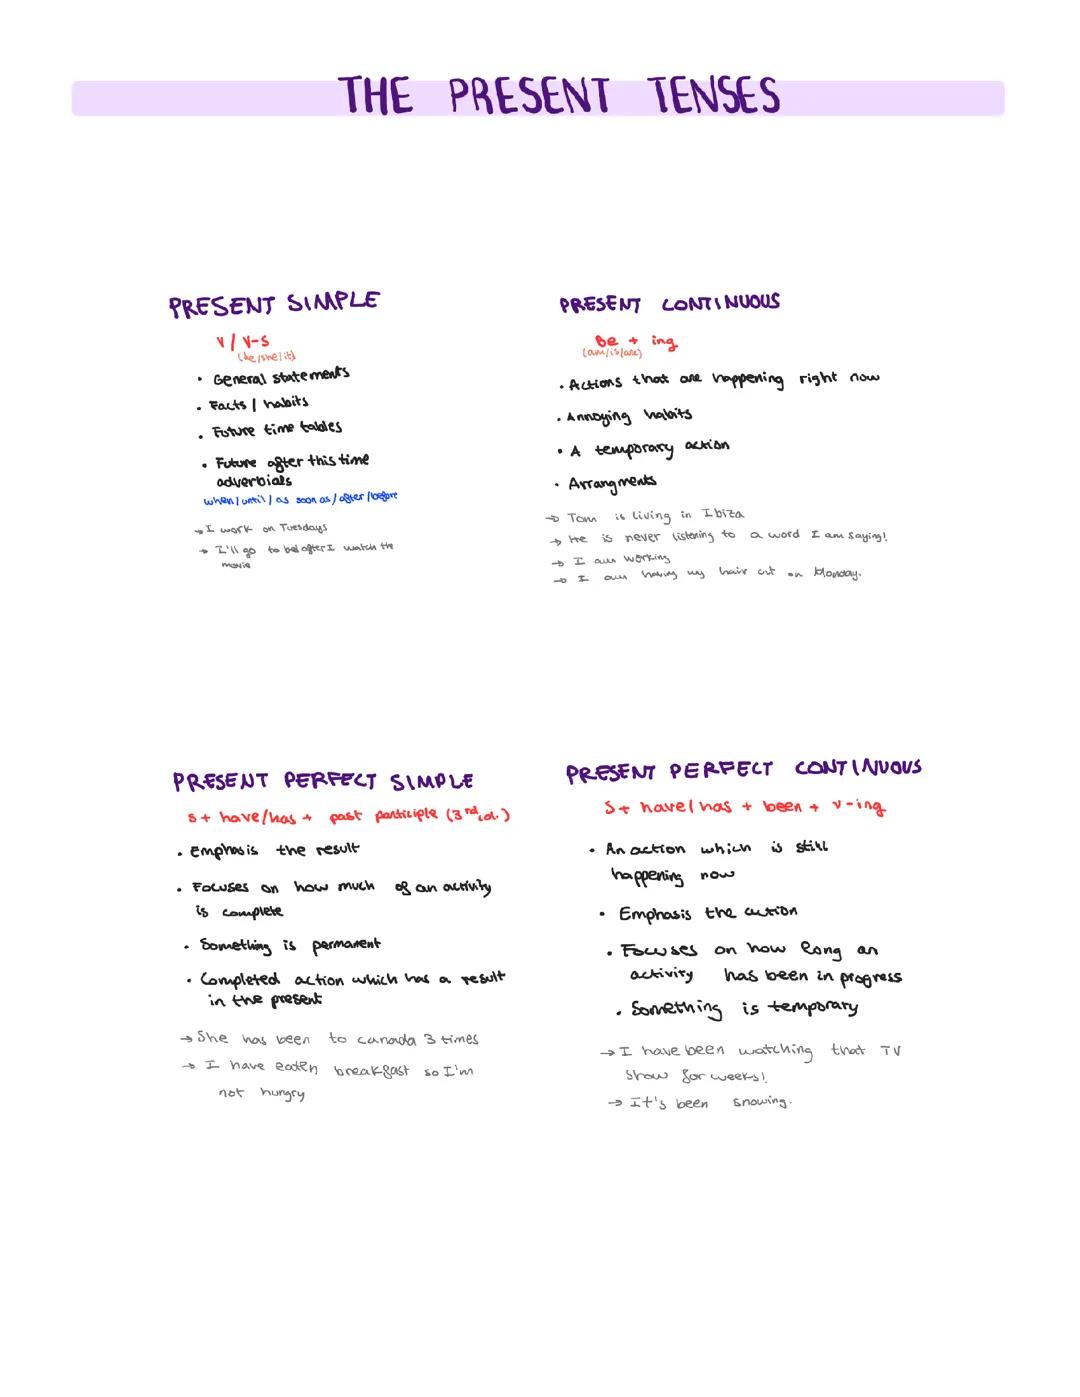 THE PRESENT TENSES
PRESENT SIMPLE
V / V-S
(he/she/it)
• General statements
• Facts / habits
• Future time tables
• Future after this time
adverbials
when/until/as soon as/after/before
→ I work on Tuesdays
→ I'll go to bed after I watch the
movie
PRESENT CONTINUOUS
Be + ing
(am/is/are)
• Actions that are happening right now
• Annoying habits
• A temporary action
• Arrangments
→ Tom is living in Ibiza
→ He is never listening to a word I am saying!
→ I am working
→ I am having my hair cut on Monday.
PRESENT PERFECT SIMPLE
S + have/has + past participle (3rd col.)
• Emphasis the result
• Focuses on how much of an activity
is complete
• Something is permanent
• Completed action which has a result
in the present
→ She has been to canada 3 times
→ I have eaten breakfast so I'm
not hungry
PRESENT PERFECT CONTINUOUS
S + have/has + been + v-ing
• An action which is still
happening now
• Emphasis the action
• Focuses on how long an
activity has been in progress
• Something is temporary
→ I have been watching that TV
show for weeks!
→ It's been snowing.